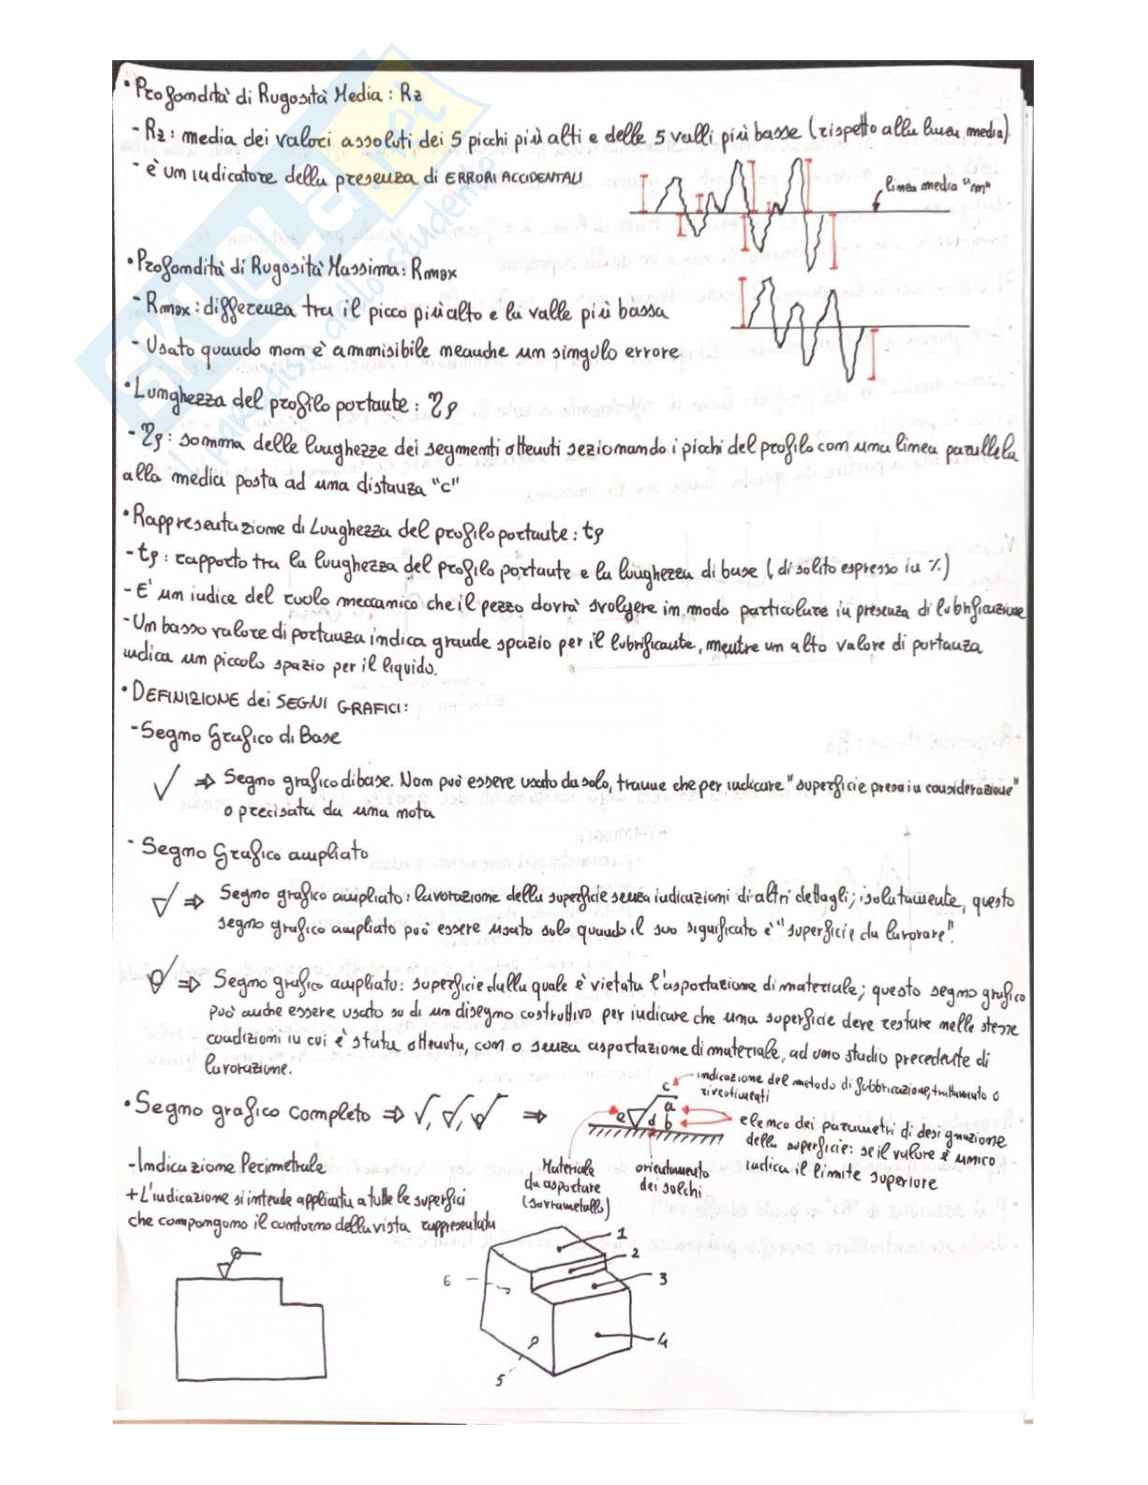 • Profondità di Rugosità Media: Rz
- Rz: media dei valori assoluti dei 5 picchi più alti e delle 5 valli più basse (rispetto alla linea media)
- è un indicatore della presenza di ERRORI ACCIDENTALI
linea media "m"
• Profondità di Rugosità Massima: Rmax
- Rmax: differenza tra il picco più alto e la valle più bassa
- Usato quando non è ammisibile neanche un singolo errore
• Lunghezza del profilo portante: ηp
- ηp: somma delle lunghezze dei segmenti ottenuti sezionando i picchi del profilo con una linea parallela
alla media posta ad una distanza "c"
• Rappresentazione di Lunghezza del profilo portante: tp
- tp: rapporto tra la lunghezza del profilo portante e la lunghezza di base (di solito espresso in %)
- E' un indice del ruolo meccanico che il pezzo dovrà svolgere in modo particolare in presenza di lubrificazione
- Un basso valore di portanza indica grande spazio per il lubrificante, mentre un alto valore di portanza
indica un piccolo spazio per il liquido.
• DEFINIZIONE dei SEGNI GRAFICI:
- Segno Grafico di Base
⇒ Segno grafico di base. Non può essere usato da solo, tranne che per indicare "superficie presa in considerazione"
o precisata da una nota
- Segno Grafico ampliato
⇒ Segno grafico ampliato: lavorazione della superficie senza indicazioni di altri dettagli; isolatamente, questo
segno grafico ampliato può essere usato solo quando il suo significato è "superficie da lavorare".
⇒ Segno grafico ampliato: superficie dalla quale è vietata l'asportazione di materiale; questo segno grafico
può anche essere usato su di un disegno costruttivo per indicare che una superficie deve restare nelle stesse
condizioni in cui è stata ottenuta, con o senza asportazione di materiale, ad uno studio precedente di
lavorazione.
• Segno grafico completo ⇒ , , ⇒
c
indicazione del metodo di fabbricazione, trattamento o
rivestimenti
a
e d b
elenco dei parametri di designazione
della superficie: se il valore è unico
indica il limite superiore
Materiale
da asportare
(sovrametallo)
orientamento
dei solchi
- Indicazione Perimetrale
+ L'indicazione si intende applicata a tutte le superfici
che compongono il contorno della vista rappresentata
1
2
3
4
5
6
SKUOLA.net
il paradiso dello studente